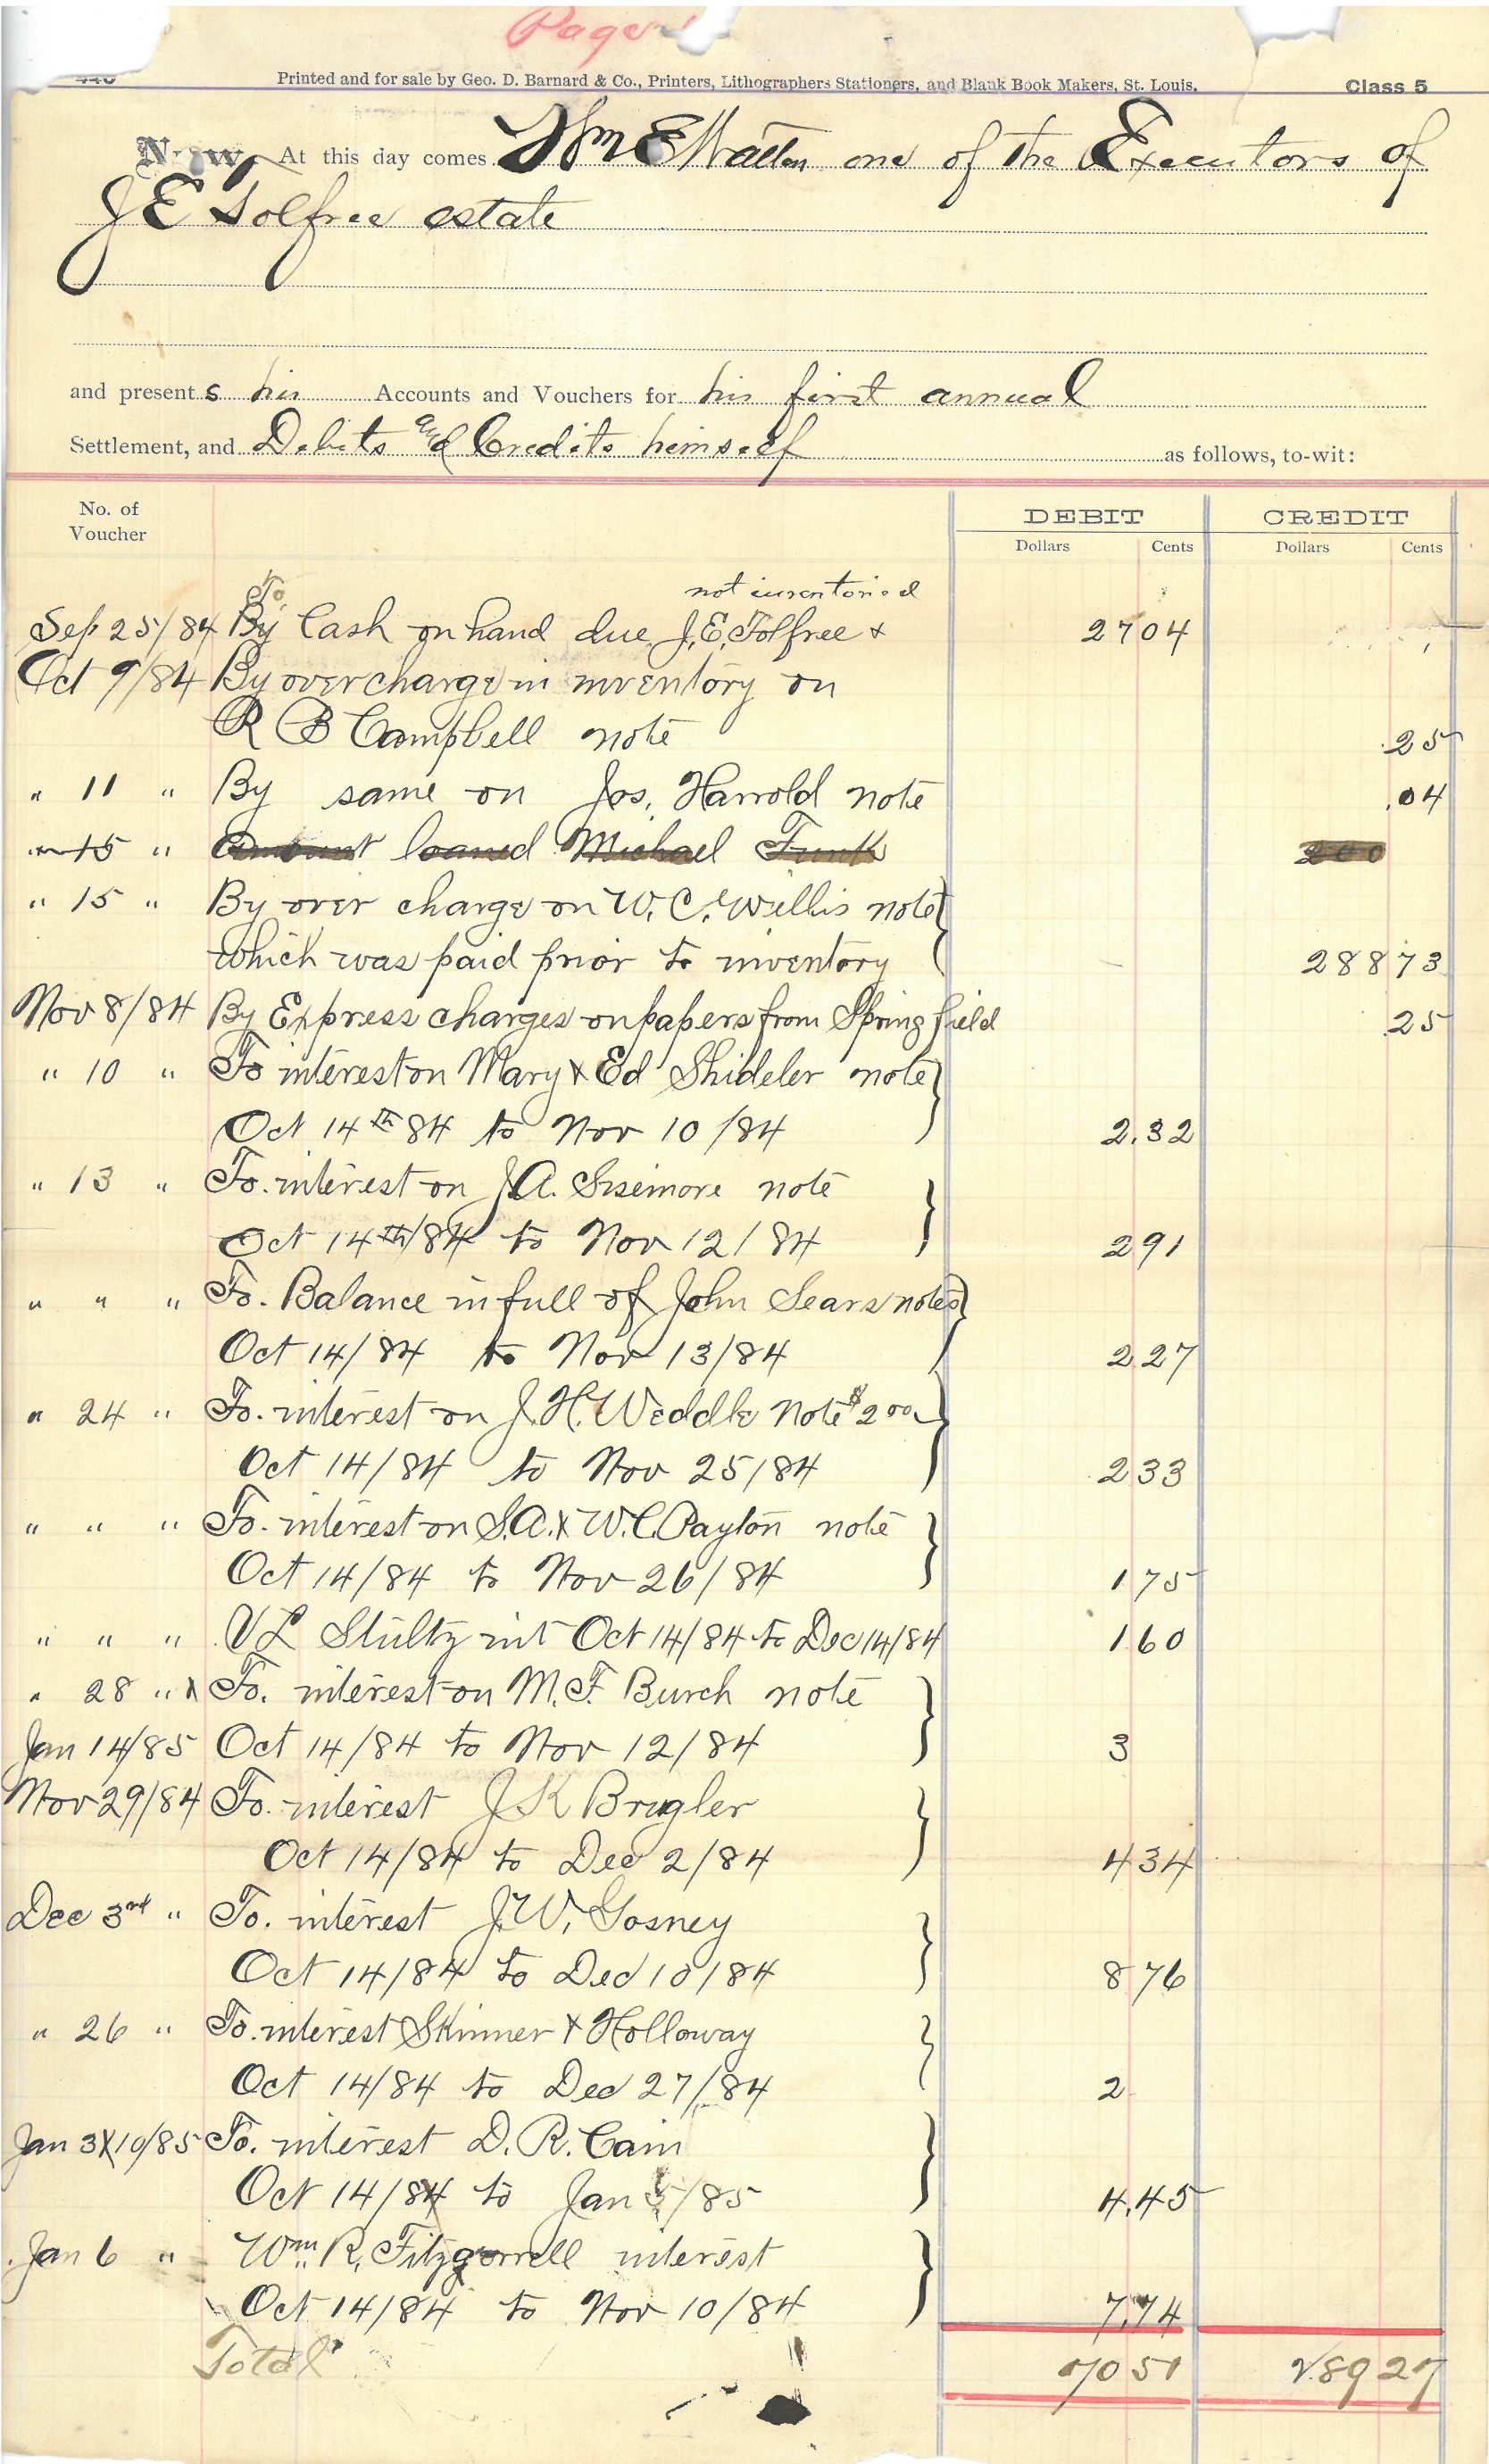 Page
Printed and for sale by Geo. D. Barnard & Co., Printers, Lithographers Stationers, and Blank Book Makers, St. Louis. Class 5
Now, At this day comes Wm E Watten one of the Executors of
J E Tolfree estate
and present s his Accounts and Vouchers for his first annual
Settlement, and Debits and Credits himself as follows, to-wit:
No. of Voucher DEBIT CREDIT
Dollars Cents Dollars Cents
To not inventoried
Sep 25/84 By Cash on hand due J. E. Tolfree & 27 04
Oct 9/84 By over charge in inventory on
R B Campbell note .25
" 11 " By same on Jos. Harrold note .04
" 15 " Amount loaned Michael Funk 200
" 15 " By over charge on W. C. Willis note
which was paid prior to inventory 288 73
Nov 8/84 By Express charges on papers from Springfield .25
" 10 " To interest on Mary & Ed Shideler note
Oct 14th 84 to Nov 10/84 2.32
" 13 " To. interest on J.A. Sisemore note
Oct 14th/84 to Nov 12/84 2 91
" " " To. Balance in full of John Sears notes
Oct 14/84 to Nov 13/84 2 27
" 24 " To. interest on J. H. Weddle Note $200
Oct 14/84 to Nov 25/84 2 33
" " " To. interest on S.A. & W.C. Payton note
Oct 14/84 to Nov 26/84 1 75
" " " V L Stultz int Oct 14/84 to Dec 14/84 1 60
" 28 " & To. interest on M. F. Burch note
Jan 14/85 Oct 14/84 to Nov 12/84 3
Nov 29/84 To. interest J K Brugler
Oct 14/84 to Dec 2/84 4 34
Dec 3rd " To. interest J. W. Gosney
Oct 14/84 to Dec 10/84 8 76
" 26 " To. interest Skinner & Holloway
Oct 14/84 to Dec 27/84 2
Jan 3 & 10/85 To. interest D. R. Cain
Oct 14/84 to Jan /85 4.45
Jan 6 " Wm. R. Fitzgerrell interest
Oct 14/84 to Nov 10/84 7.74
Total 70 51 289 27